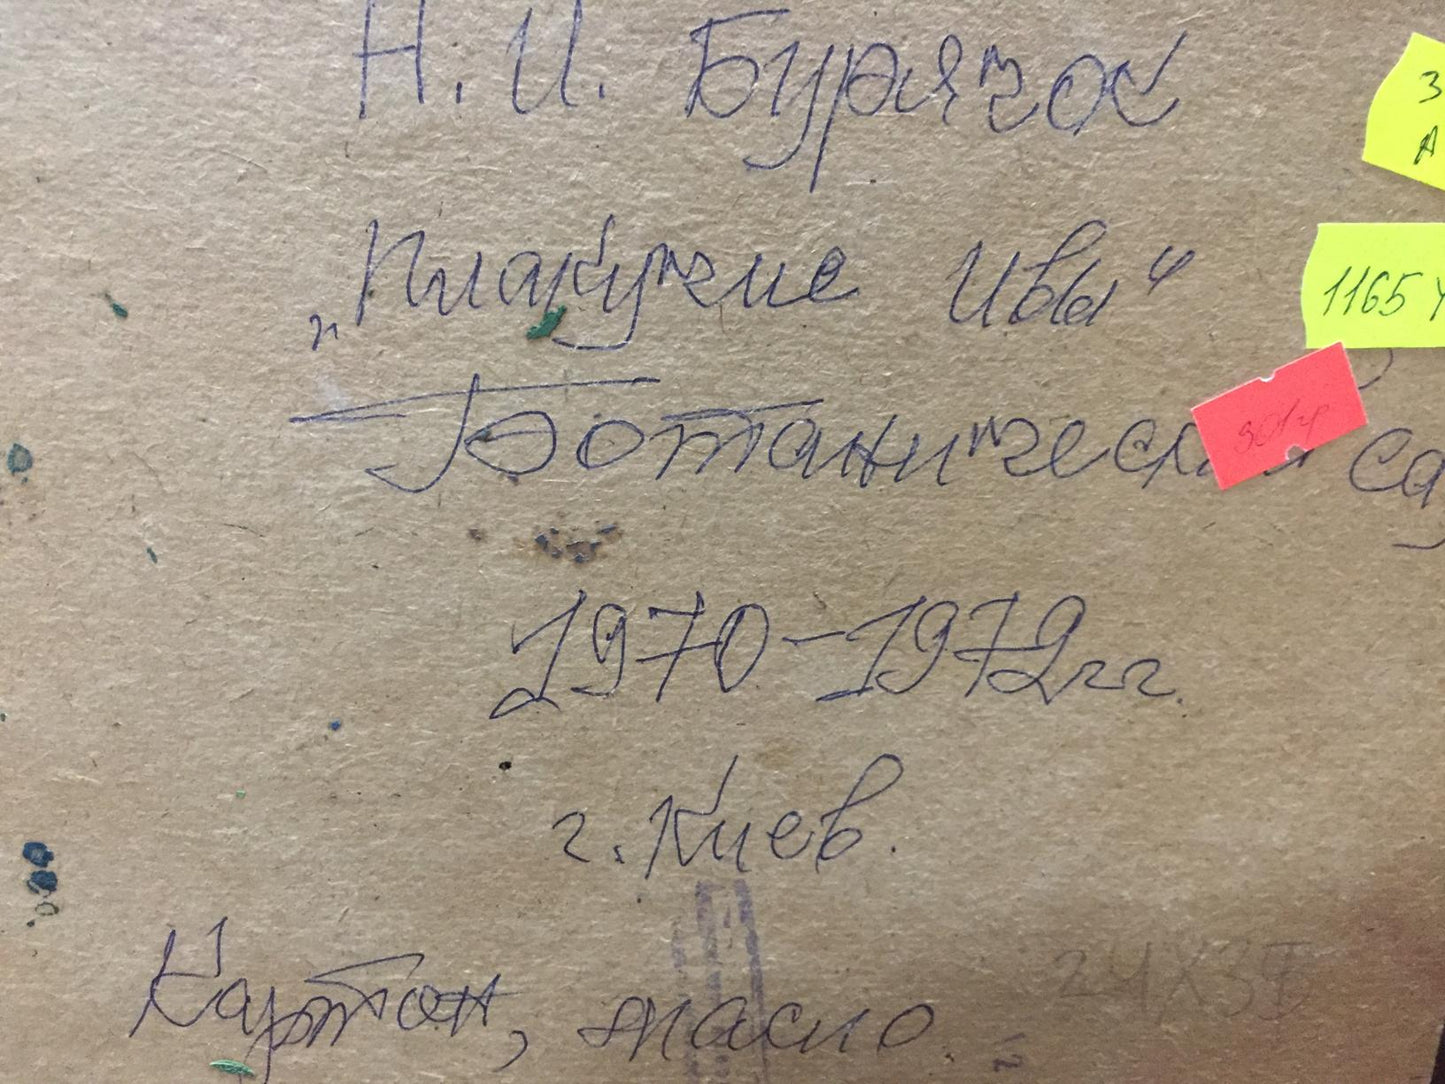 Н. И. Бурячок
„Плакучие ивы“
Ботанический са
1970-1972 гг.
г. Киев.
Картон, масло.
1165